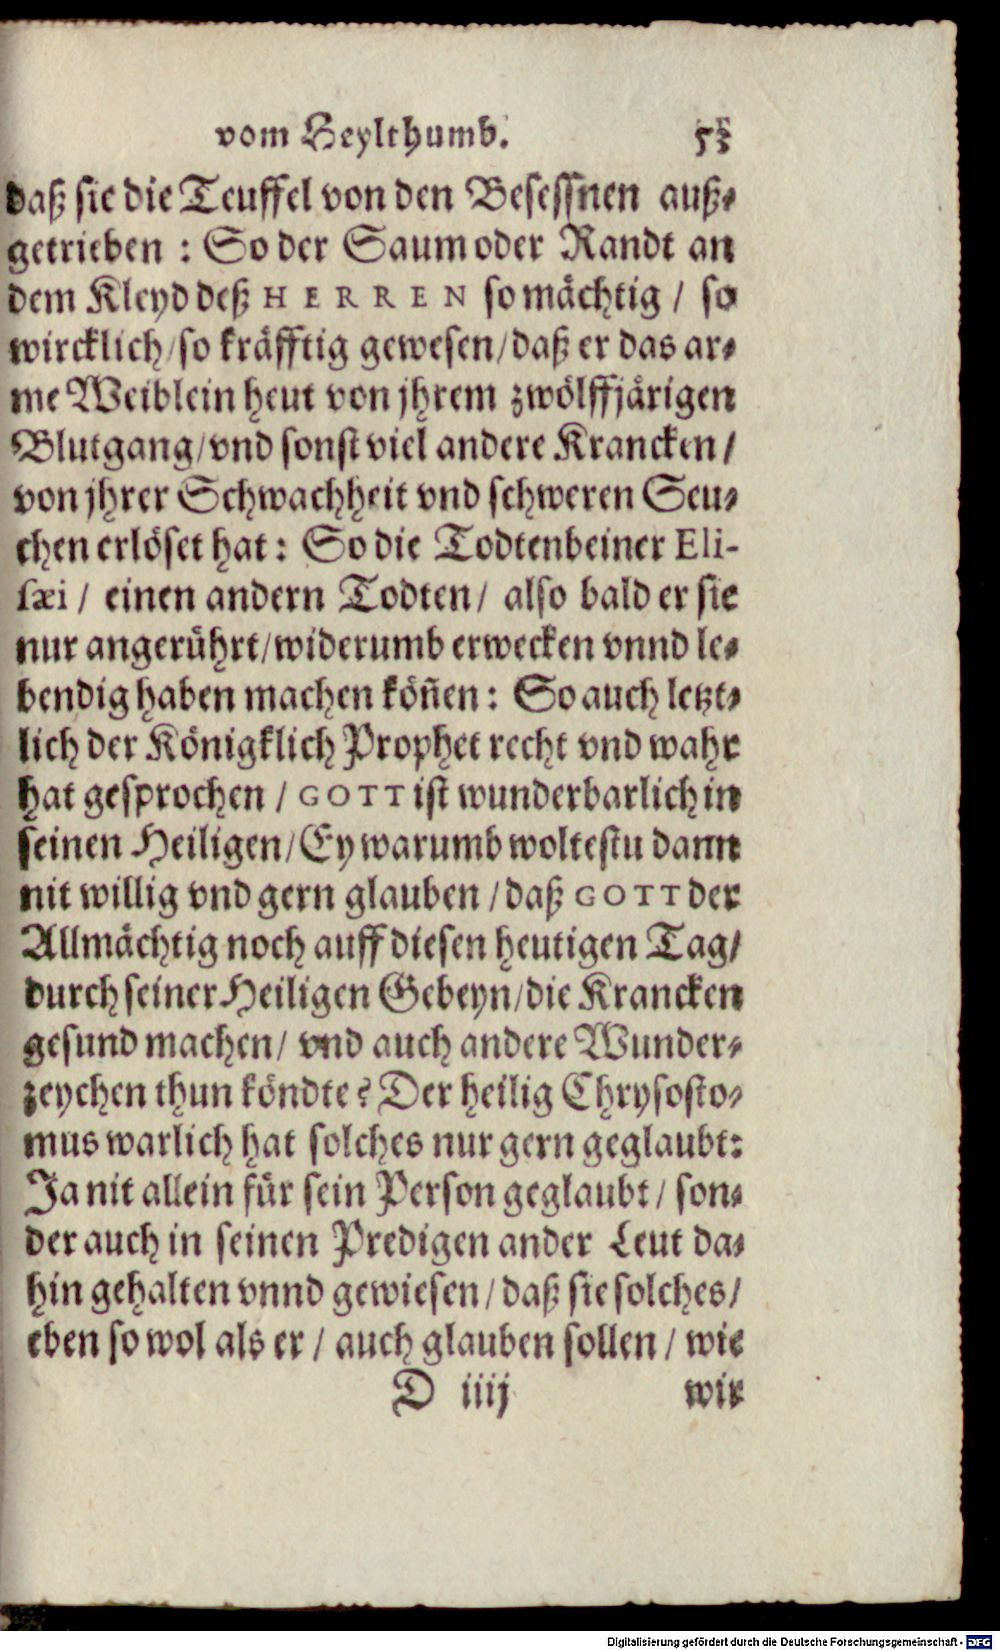 vom Heylthumb. 53
daß sie die Teuffel von den Besessnen auß-
getrieben : So der Saum oder Randt an
dem Kleyd deß HERREN so mächtig / so
wircklich / so kräfftig gewesen / daß er das ar-
me Weiblein heut von jhrem zwölffjärigen
Blutgang / vnd sonst viel andere Krancken /
von jhrer Schwachheit vnd schweren Seu-
chen erlöset hat : So die Todtenbeiner Eli-
sæi / einen andern Todten / also bald er sie
nur angerührt / widerumb erwecken vnnd le-
bendig haben machen köñen : So auch letzt-
lich der Königklich Prophet recht vnd wahr
hat gesprochen / GOTT ist wunderbarlich in
seinen Heiligen / Ey warumb woltestu dann
nit willig vnd gern glauben / daß GOTT der
Allmächtig noch auff diesen heutigen Tag /
durch seiner Heiligen Gebeyn / die Krancken
gesund machen / vnd auch andere Wunder-
zeychen thun köndte ? Der heilig Chrysosto-
mus warlich hat solches nur gern geglaubt :
Ja nit allein für sein Person geglaubt / son-
der auch in seinen Predigen ander Leut da-
hin gehalten vnnd gewiesen / daß sie solches /
eben so wol als er / auch glauben sollen / wie
D iiij wir
Digitalisierung gefördert durch die Deutsche Forschungsgemeinschaft - DFG